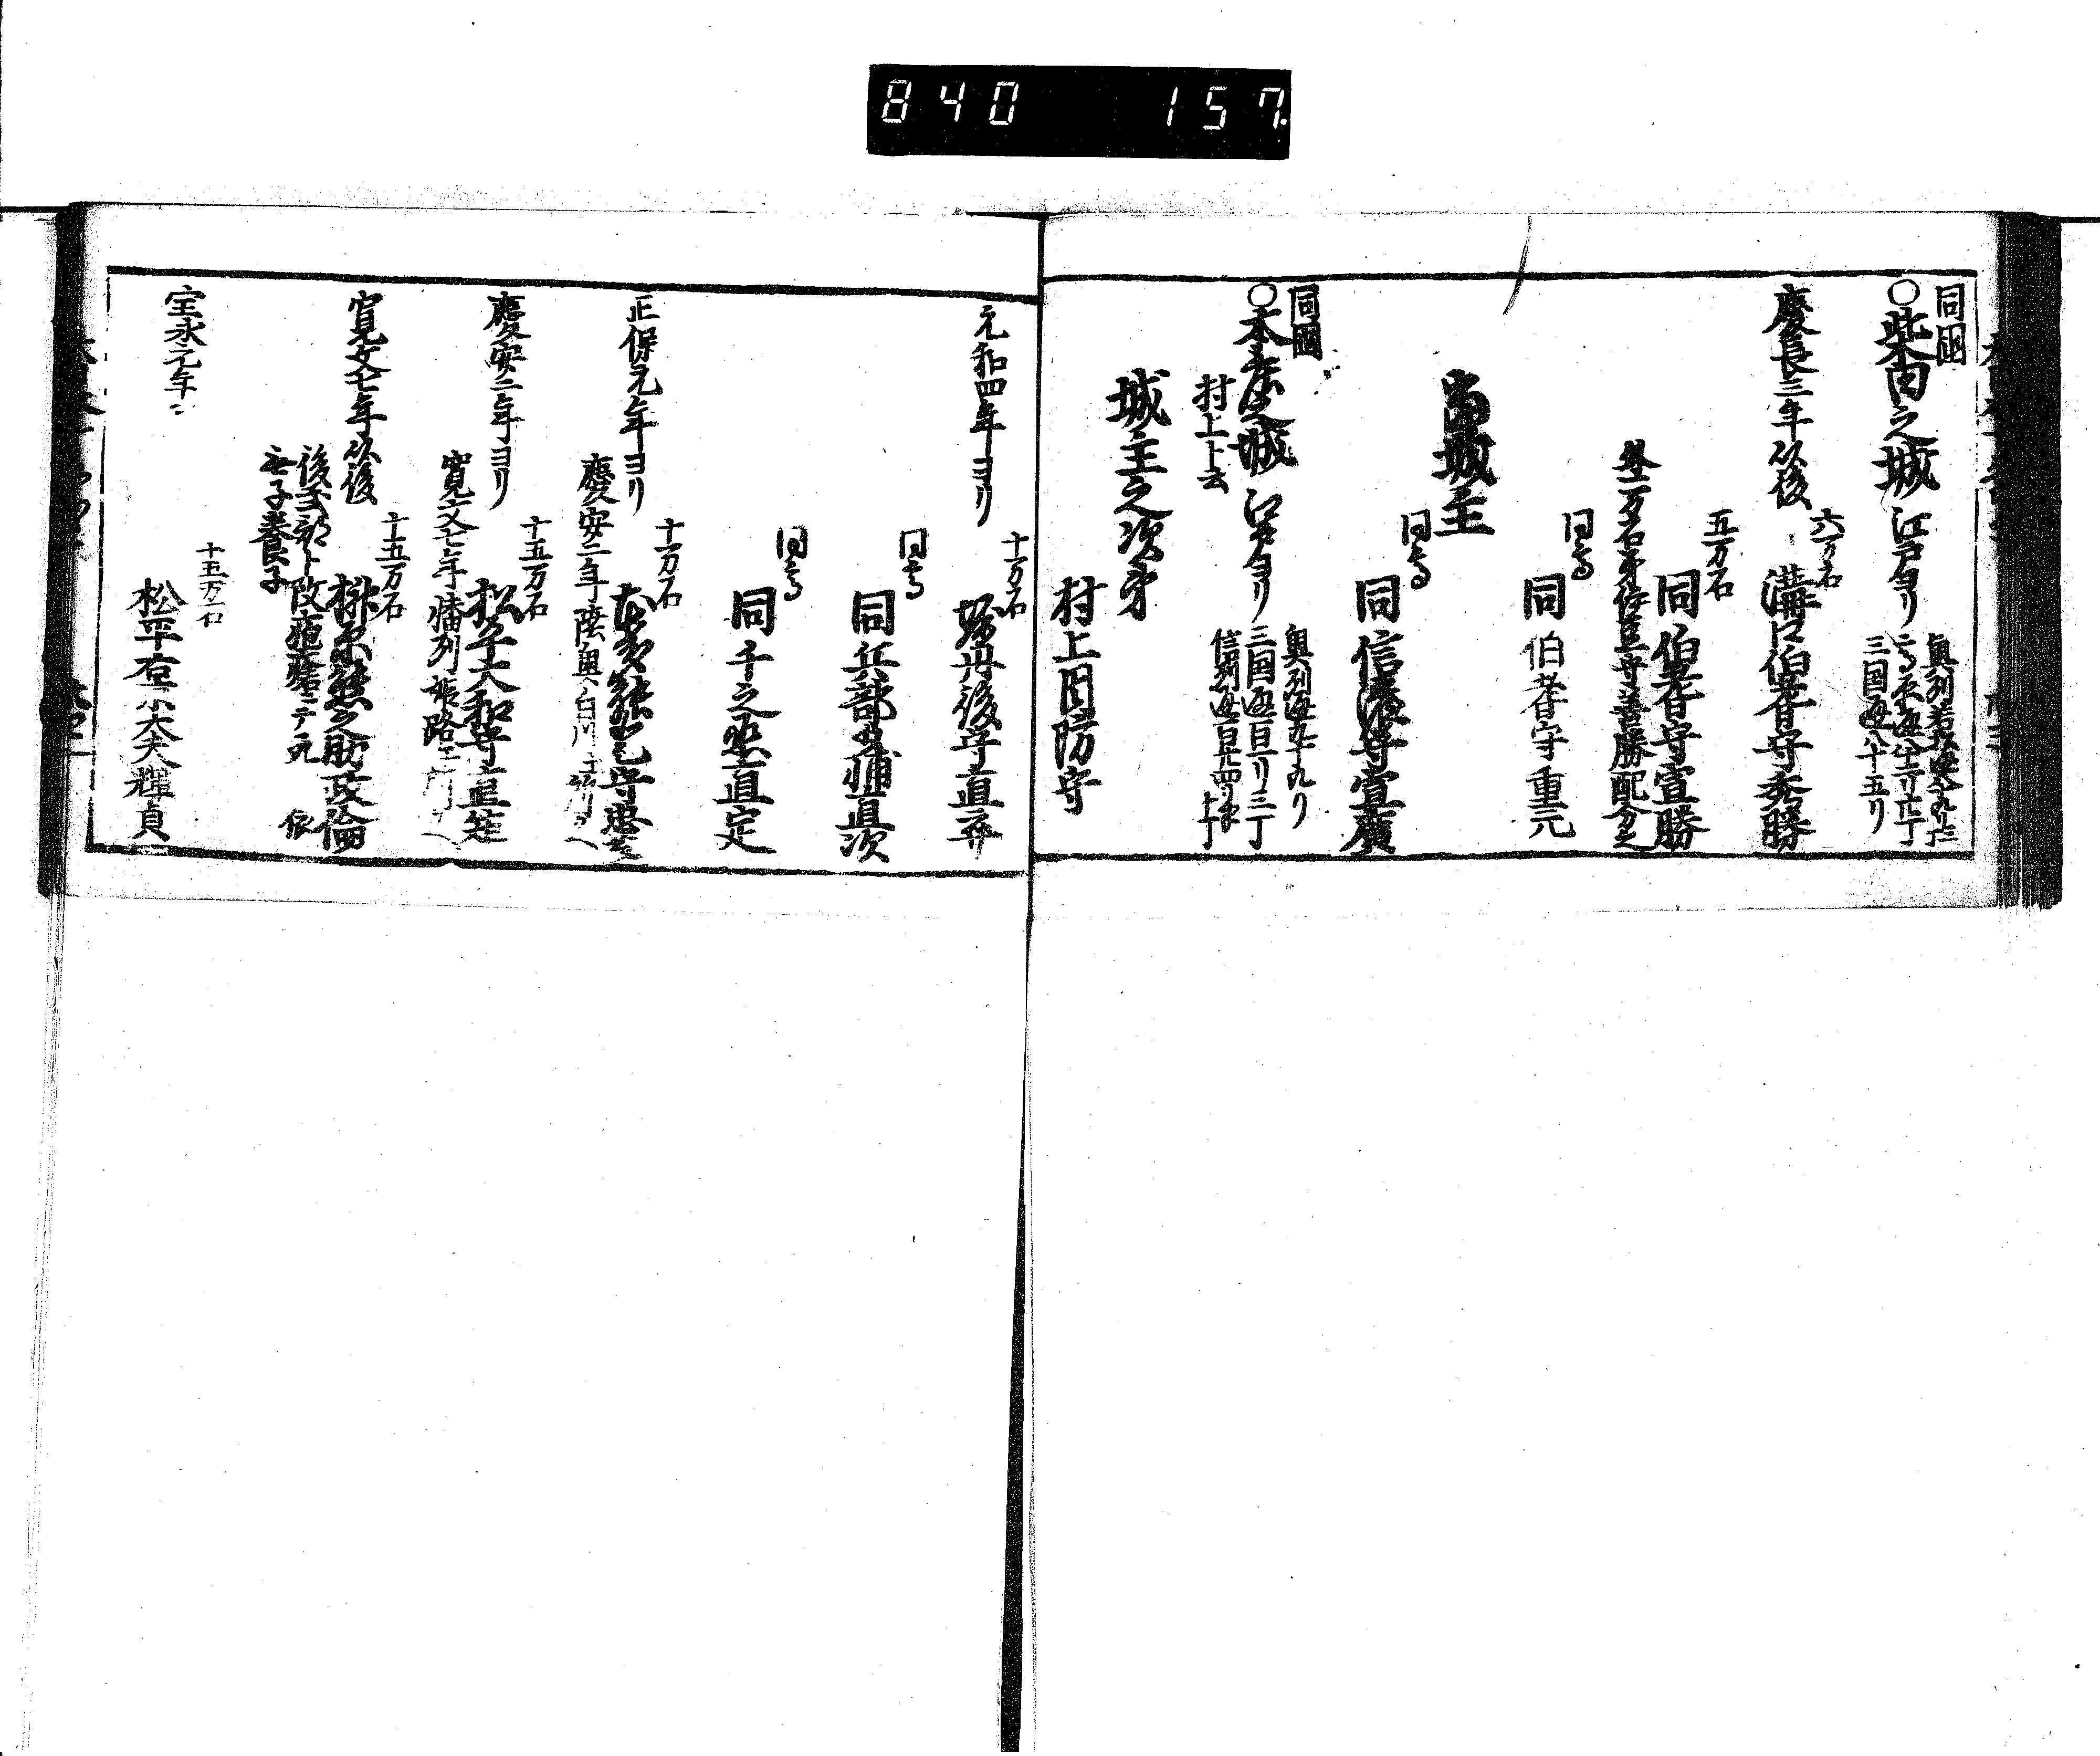 840 157
同国
○柴田之城 江戸ヨリ
三国海八十五リ
慶長三年以後
六万石
溝口伯耆守秀勝
五万石
同伯耆守宣勝
外一万石弟伊豆守善勝配分之
同高
同伯耆守重元
当城主
同高
同信濃守宣廣
同国
○本庄之城 江戸ヨリ
村上ト云
三国海百一リ三丁
城主之次第
村上周防守
元和四年ヨリ
十万石
堀丹後守直寄
同高
同兵部少輔直次
同高
同千之丞直定
正保元年ヨリ
十万石
本多能登守忠義
慶安二年ヨリ
十五万石
松平大和守直矩
寛文七年播州姫路
寛文七年以後
十五万石
榊原熊之助政倫
後式部ト改疱瘡ニテ死 依
無子養子
宝永元年ニ
十五万石
松平右京大夫輝貞